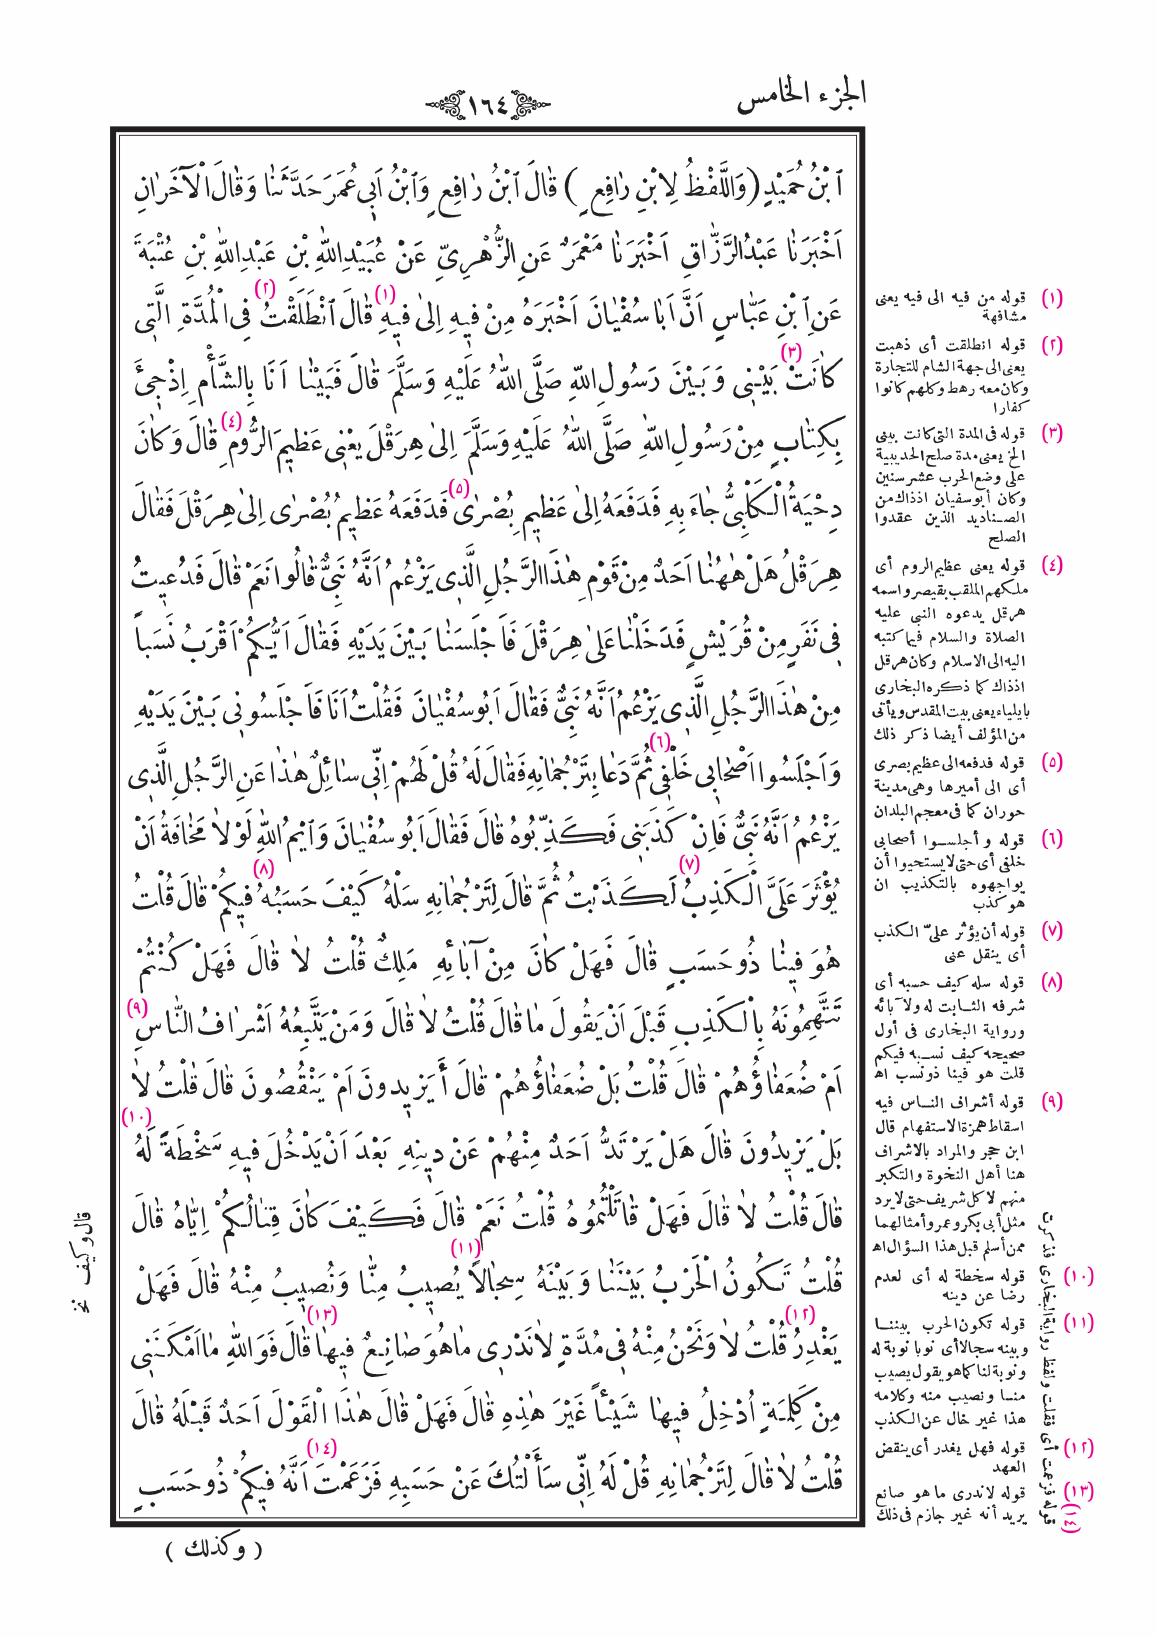 الجزء الخامس
١٦٤
ٱبْنُ حُمَيْدٍ (وَاللَّفْظُ لِابْنِ رَافِعٍ) قَالَ ٱبْنُ رَافِعٍ وَٱبْنُ اَبِي عُمَرَ حَدَّثَنَا وَقَالَ الْآخَرَانِ
اَخْبَرَنَا عَبْدُالرَّزَّاقِ اَخْبَرَنَا مَعْمَرٌ عَنِ الزُّهْرِيِّ عَنْ عُبَيْدِاللّٰهِ بْنِ عَبْدِاللّٰهِ بْنِ عُتْبَةَ
عَنِ ٱبْنِ عَبَّاسٍ اَنَّ اَبَا سُفْيَانَ اَخْبَرَهُ مِنْ فِيهِ اِلَىٰ فِيهِ (١) قَالَ ٱنْطَلَقْتُ (٢) فِي الْمُدَّةِ الَّتِي
كَانَتْ (٣) بَيْنِي وَبَيْنَ رَسُولِ اللّٰهِ صَلَّى اللّٰهُ عَلَيْهِ وَسَلَّمَ قَالَ فَبَيْنَا اَنَا بِالشَّأْمِ اِذْ جِئَ
بِكِتَابٍ مِنْ رَسُولِ اللّٰهِ صَلَّى اللّٰهُ عَلَيْهِ وَسَلَّمَ اِلَىٰ هِرَقْلَ يَعْنِي عَظِيمَ الرُّومِ (٤) قَالَ وَكَانَ
دِحْيَةُ الْكَلْبِيُّ جَاءَ بِهِ فَدَفَعَهُ اِلَىٰ عَظِيمِ بُصْرَى (٥) فَدَفَعَهُ عَظِيمُ بُصْرَى اِلَىٰ هِرَقْلَ فَقَالَ
هِرَقْلُ هَلْ هٰهُنَا اَحَدٌ مِنْ قَوْمِ هٰذَا الرَّجُلِ الَّذِي يَزْعُمُ اَنَّهُ نَبِيٌّ قَالُوا نَعَمْ قَالَ فَدُعِيتُ
فِي نَفَرٍ مِنْ قُرَيْشٍ فَدَخَلْنَا عَلَىٰ هِرَقْلَ فَاَجْلَسَنَا بَيْنَ يَدَيْهِ فَقَالَ اَيُّكُمْ اَقْرَبُ نَسَباً
مِنْ هٰذَا الرَّجُلِ الَّذِي يَزْعُمُ اَنَّهُ نَبِيٌّ فَقَالَ اَبُوسُفْيَانَ فَقُلْتُ اَنَا فَاَجْلَسُونِي بَيْنَ يَدَيْهِ
وَاَجْلَسُوا اَصْحَابِي خَلْفِي (٦) ثُمَّ دَعَا بِتَرْجُمَانِهِ فَقَالَ لَهُ قُلْ لَهُمْ اِنِّي سَائِلٌ هٰذَا عَنِ الرَّجُلِ الَّذِي
يَزْعُمُ اَنَّهُ نَبِيٌّ فَاِنْ كَذَبَنِي فَكَذِّبُوهُ قَالَ فَقَالَ اَبُوسُفْيَانَ وَاَيْمُ اللّٰهِ لَوْلَا مَخَافَةُ اَنْ
يُؤْثَرَ عَلَيَّ الْكَذِبُ (٧) لَكَذَبْتُ ثُمَّ قَالَ لِتَرْجُمَانِهِ سَلْهُ كَيْفَ حَسَبُهُ (٨) فِيكُمْ قَالَ قُلْتُ
هُوَ فِينَا ذُو حَسَبٍ قَالَ فَهَلْ كَانَ مِنْ آبَائِهِ مَلِكٌ قُلْتُ لَا قَالَ فَهَلْ كُنْتُمْ
تَتَّهِمُونَهُ بِالْكَذِبِ قَبْلَ اَنْ يَقُولَ مَا قَالَ قُلْتُ لَا قَالَ وَمَنْ يَتَّبِعُهُ اَشْرَافُ النَّاسِ (٩)
اَمْ ضُعَفَاؤُهُمْ قَالَ قُلْتُ بَلْ ضُعَفَاؤُهُمْ قَالَ أَيَزِيدُونَ اَمْ يَنْقُصُونَ قَالَ قُلْتُ لَا
بَلْ يَزِيدُونَ قَالَ هَلْ يَرْتَدُّ اَحَدٌ مِنْهُمْ عَنْ دِينِهِ بَعْدَ اَنْ يَدْخُلَ فِيهِ سَخْطَةً لَهُ (١٠)
قَالَ قُلْتُ لَا قَالَ فَهَلْ قَاتَلْتُمُوهُ قُلْتُ نَعَمْ قَالَ فَكَيْفَ كَانَ قِتَالُكُمْ اِيَّاهُ قَالَ
قُلْتُ تَكُونُ الْحَرْبُ بَيْنَنَا وَبَيْنَهُ سِجَالاً (١١) يُصِيبُ مِنَّا وَنُصِيبُ مِنْهُ قَالَ فَهَلْ
يَغْدِرُ (١٢) قُلْتُ لَا وَنَحْنُ مِنْهُ فِي مُدَّةٍ لَا نَدْرِي مَا هُوَ صَانِعٌ فِيهَا (١٣) قَالَ فَوَاللّٰهِ مَا اَمْكَنَنِي
مِنْ كَلِمَةٍ اُدْخِلُ فِيهَا شَيْئاً غَيْرَ هٰذِهِ قَالَ فَهَلْ قَالَ هٰذَا الْقَوْلَ اَحَدٌ قَبْلَهُ قَالَ
قُلْتُ لَا قَالَ لِتَرْجُمَانِهِ قُلْ لَهُ اِنِّي سَأَلْتُكَ عَنْ حَسَبِهِ فَزَعَمْتَ (١٤) اَنَّهُ فِيكُمْ ذُو حَسَبٍ
( وكذلك )
(١) قوله من فيه الى فيه يعنى
مشافهة
(٢) قوله انطلقت أى ذهبت
يعنى الى جهة الشام للتجارة
وكان معه رهط وكلهم كانوا
كفارا
(٣) قوله فى المدة التى كانت بينى
الخ يعنى مدة صلح الحديبية
على وضع الحرب عشر سنين
وكان أبو سفيان اذذاك من
الصناديد الذين عقدوا
الصلح
(٤) قوله يعنى عظيم الروم أى
ملكهم الملقب بقيصر واسمه
هرقل يدعوه النبى عليه
الصلاة والسلام فيما كتبه
اليه الى الاسلام وكان هرقل
اذذاك كما ذكره البخارى
بايلياء يعنى بيت المقدس ويأتى
من المؤلف أيضا ذكر ذلك
(٥) قوله فدفعه الى عظيم بصرى
أى الى أميرها وهى مدينة
حوران كما فى معجم البلدان
(٦) قوله وأجلسوا أصحابى
خلفى أى حتى لا يستحيوا أن
يواجهوه بالتكذيب ان
هو كذب
(٧) قوله أن يؤثر علىّ الكذب
أى ينقل عنى
(٨) قوله سله كيف حسبه أى
شرفه الثابت له ولآبائه
ورواية البخارى فى أول
صحيحه كيف نسبه فيكم
قلت هو فينا ذو نسب اه
(٩) قوله أشراف الناس فيه
اسقاط همزة الاستفهام قال
ابن حجر والمراد بالاشراف
هنا أهل النخوة والتكبر
منهم لا كل شريف حتى لا يرد
مثل أبى بكر وعمر وأمثالهما
ممن أسلم قبل هذا السؤال اه
(١٠) قوله سخطة له أى لعدم
رضا عن دينه
(١١) قوله تكون الحرب بيننا
وبينه سجالا أى نوبا نوبة له
ونوبة لنا كما هو يقول يصيب
منا ونصيب منه وكلامه
هذا غير خال عن الكذب
(١٢) قوله فهل يغدر أى ينقض
العهد
(١٣) قوله لا ندرى ما هو صانع
يريد أنه غير جازم فى ذلك
(١٤) قوله فزعمت أى فقلت ولفظ رواية البخارى فذكرت
قال وكيف نخ